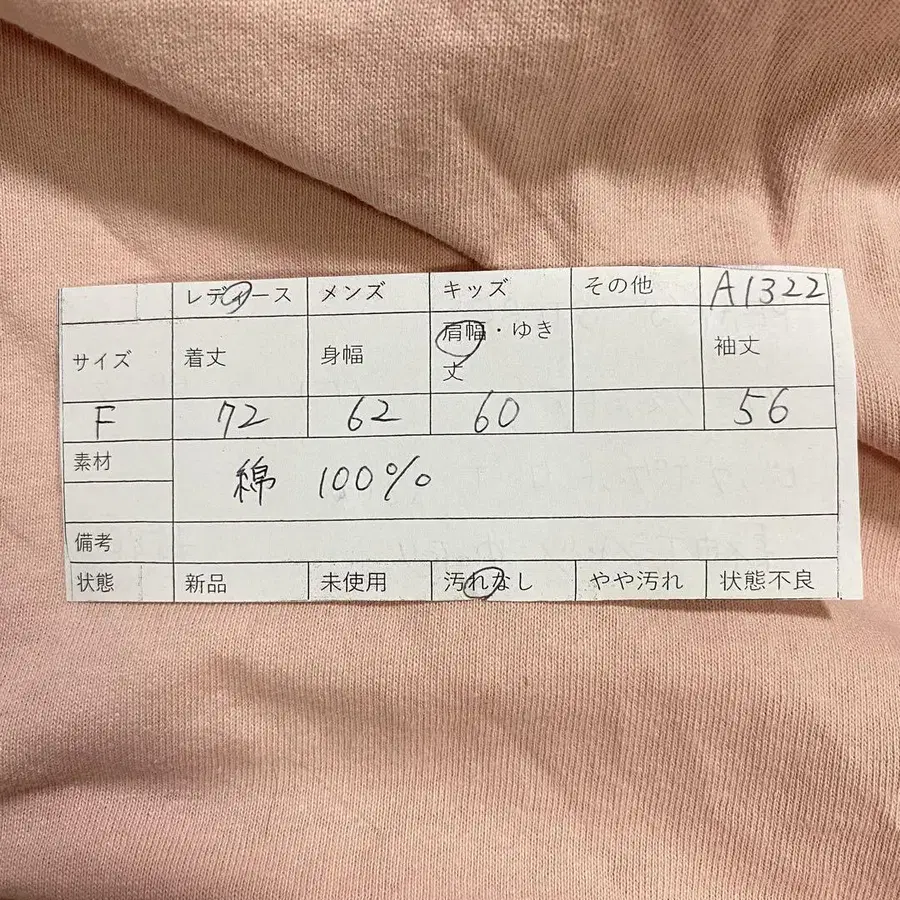 レディース メンズ キッズ その他 A1322
サイズ 着丈 身幅 肩幅・ゆき丈 袖丈
F 72 62 60 56
素材 綿 100%
備考
状態 新品 未使用 汚れなし やや汚れ 状態不良